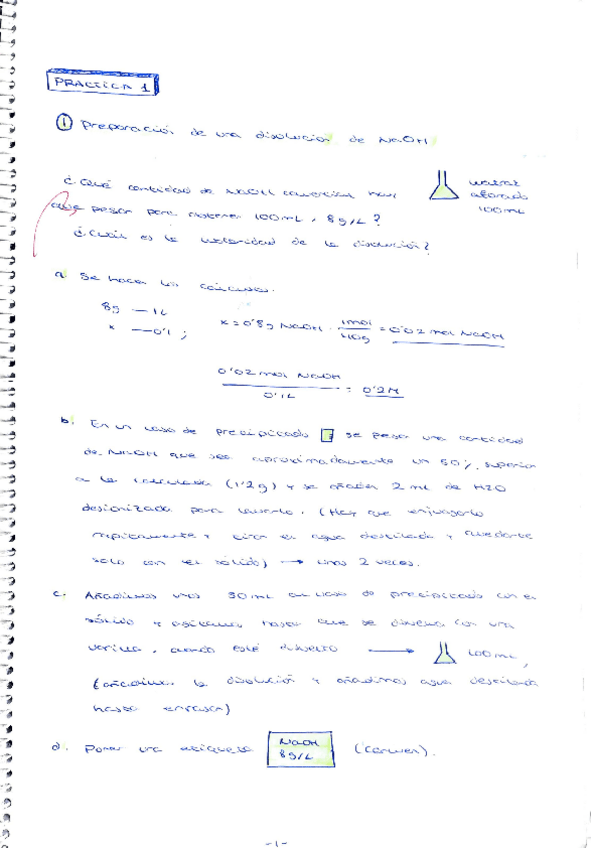 PRACTICA 1
① Preparación de una disolución de NaOH
¿Qué cantidad de NaOH comercial hay
que pesar para obtener 100mL, 8g/L?
matraz
aforado
100mL
¿Cuál es la molaridad de la disolución?
a. Se hacen los cálculos.
8g — 1L
x — 0'1 ;
x = 0'8g NaOH · 1mol / 40g = 0'02 mol NaOH
0'02 mol NaOH / 0'1L = 0'2M
b. En un vaso de precipitado se pesa una cantidad
de NaOH que sea aproximadamente un 50% superior
a la calculada (1'2g) y se añaden 2 mL de H2O
desionizada para lavarlo. (Hay que enjuagarlo
rápidamente y tirar el agua destilada y quedarte
solo con el sólido) → unas 2 veces.
c. Añadimos unos 30mL al vaso de precipitado con el
sólido y agitamos hasta que se disuelva con una
varilla, cuando esté disuelto → 100mL,
la disolución y añadimos agua destilada
hasta enrasar)
d. Poner una etiqueta
NaOH
8g/L
-1-